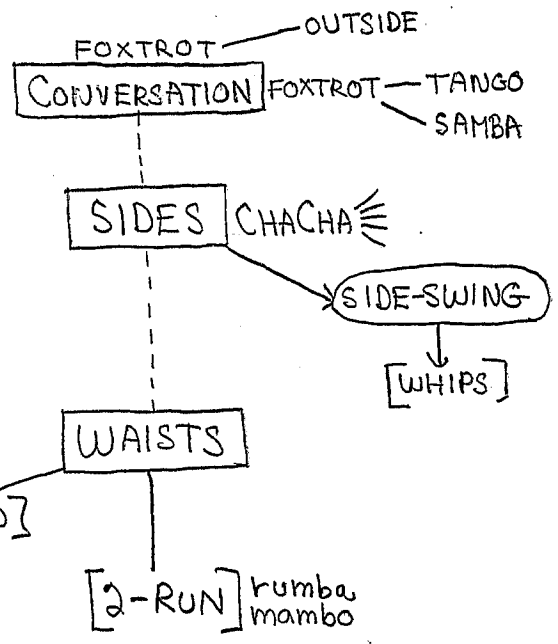 OUTSIDE
FOXTROT
CONVERSATION FOXTROT TANGO
SAMBA
SIDES CHACHA
SIDE-SWING
[WHIPS]
WAISTS
[2-RUN] rumba
mambo